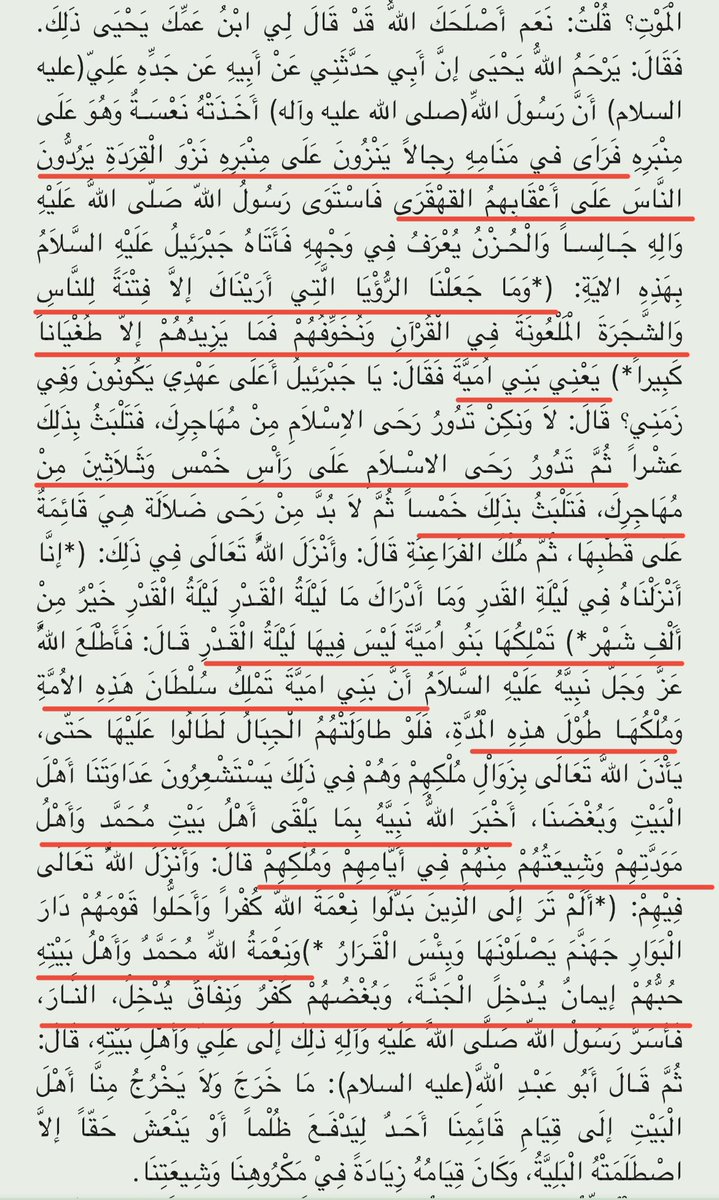 الْمَوْتِ؟ قُلْتُ: نَعَم أَصْلَحَكَ اللهُ قَدْ قَالَ لِي ابْنُ عَمِّكَ يَحْيَى ذَلِكَ.
فَقَالَ: يَرْحَمُ اللهُ يَحْيَى إنَّ أَبِي حَدَّثَنِي عَنْ أَبِيهِ عَن جَدِّهِ عَلِيّ(عليه
السلام) أَنَّ رَسُولَ اللهِ(صلى الله عليه وآله) أَخَذَتْهُ نَعْسَةٌ وَهُوَ عَلَى
مِنْبَرِهِ فَرَاَى فِي مَنَامِهِ رِجالاً يَنْزُونَ عَلَى مِنْبَرِهِ نَزْوَ الْقِرَدَةِ يَرُدُّونَ
النَّاسَ عَلَى أَعْقَابِهِمُ القهْقَرَى فَاسْتَوَى رَسُولُ اللهِ صَلَّى اللهُ عَلَيْهِ
وَالِهِ جَالِساً وَالْحُزْنُ يُعْرَفُ فِي وَجْهِهِ فَأَتَاهُ جَبْرَئِيلُ عَلَيْهِ السَّلَامُ
بِهَذِهِ الايَةِ: (*وَمَا جَعَلْنَا الرُّؤْيَا الَّتِي أَرَيْنَاكَ إلاَّ فِتْنَةً لِلنَّاسِ
وَالشَّجَرَةَ الْمَلْعُونَةَ فِي الْقُرْآنِ وَنُخَوِّفُهُمْ فَمَا يَزِيدُهُمْ إلاّ طُغْيَاناً
كَبِيراً*) يَعْنِي بَنِي اُمَيَّةَ فَقَالَ: يَا جَبْرَئِيلُ أَعَلَى عَهْدِي يَكُونُونَ وَفِي
زَمَنِي؟ قَالَ: لاَ وَلكِنْ تَدُورُ رَحَى الاِسْلَامِ مِنْ مُهَاجِرِكَ، فَتَلْبَثُ بِذَلِكَ
عَشْراً ثُمَّ تَدُورُ رَحَى الاسْلَامِ عَلَى رَأْسِ خَمْس وَثَلَاثِينَ مِنْ
مُهَاجِرِكَ، فَتَلْبَثُ بِذَلِكَ خَمْساً ثُمَّ لاَ بُدَّ مِنْ رَحَى ضَلَالَة هِيَ قَائِمَةٌ
عَلَى قُطْبِهَا، ثُمَّ مُلْكُ الفَرَاعِنَةِ قَالَ: وأَنْزَلَ اللهُ تَعَالَى فِي ذَلِكَ: (*إنَّا
أَنْزَلْنَاهُ فِي لَيْلَةِ القَدرِ وَمَا أَدْرَاكَ مَا لَيْلَةُ الْقَدْرِ لَيْلَةُ الْقَدْرِ خَيْرٌ مِنْ
أَلْفِ شَهْر*) تَمْلِكُهَا بَنُو اُمَيَّةَ لَيْسَ فِيهَا لَيْلَةُ الْقَدْرِ قَالَ: فَأَطْلَعَ اللهُ
عَزَّ وَجَلَّ نَبِيَّهُ عَلَيْهِ السَّلَامُ أَنَّ بَنِي امَيَّةَ تَمْلِكُ سُلْطَانَ هَذِهِ الاُمَّةِ
وَمُلْكُهَا طُوْلَ هذِهِ الْمُدَّةِ، فَلَوْ طاوَلَتْهُمُ الْجِبَالُ لَطَالُوا عَلَيْهَا حَتّى،
يَأْذَنَ اللهُ تَعَالَى بِزَوَالِ مُلْكِهِمْ وَهُمْ فِي ذَلِكَ يَسْتَشْعِرُونَ عَدَاوَتَنَا أَهْلَ
الْبَيْتِ وَبُغْضَنَا، أَخْبَرَ اللهُ نَبِيَّهُ بِمَا يَلْقَى أَهْلُ بَيْتِ مُحَمَّد وَأَهْلُ
مَوَدَّتِهِمْ وَشِيعَتُهُمْ مِنْهُمْ فِي أَيَّامِهِمْ وَمُلْكِهِمْ قالَ: وَأَنْزَلَ اللهُ تَعَالَى
فِيْهِمْ: (*أَلَمْ تَرَ إلَى الَّذِينَ بَدَّلُوا نِعْمَةَ اللهِ كُفْراً وَأَحَلُّوا قَوْمَهُمْ دَارَ
الْبَوَارِ جَهَنَّمَ يَصْلَوْنَهَا وَبِئْسَ الْقَرَارُ *)وَنِعْمَةُ اللهِ مُحَمَّدٌ وَأَهْلُ بَيْتِهِ
حُبُّهُمْ إيمَانٌ يُدْخِلُ الْجَنَّةَ، وَبُغْضُهُمْ كُفْرٌ وَنِفَاقٌ يُدْخِلُ، النَّارَ،
فَأَسَرَّ رَسُولُ اللهِ صَلَّى اللهُ عَلَيْهِ وَآلِهِ ذَلِكَ إلَى عَلِيّ وَأَهْلِ بَيْتِهِ، قَالَ:
ثُمَّ قَالَ أَبُو عَبْدِ اللهِ(عليه السلام): مَا خَرَجَ وَلاَ يَخْرُجُ مِنَّا أَهْلَ
الْبَيْتِ إلَى قِيَامِ قَائِمِنَا أَحَدٌ لِيَدْفَعَ ظُلْماً أَوْ يَنْعَشَ حَقّاً إلاَّ
اصْطَلَمَتْهُ الْبَلِيَّةُ، وَكَانَ قِيَامُهُ زِيَادَةً فِيْ مَكْرُوهِنَا وَشِيعَتِنَا.